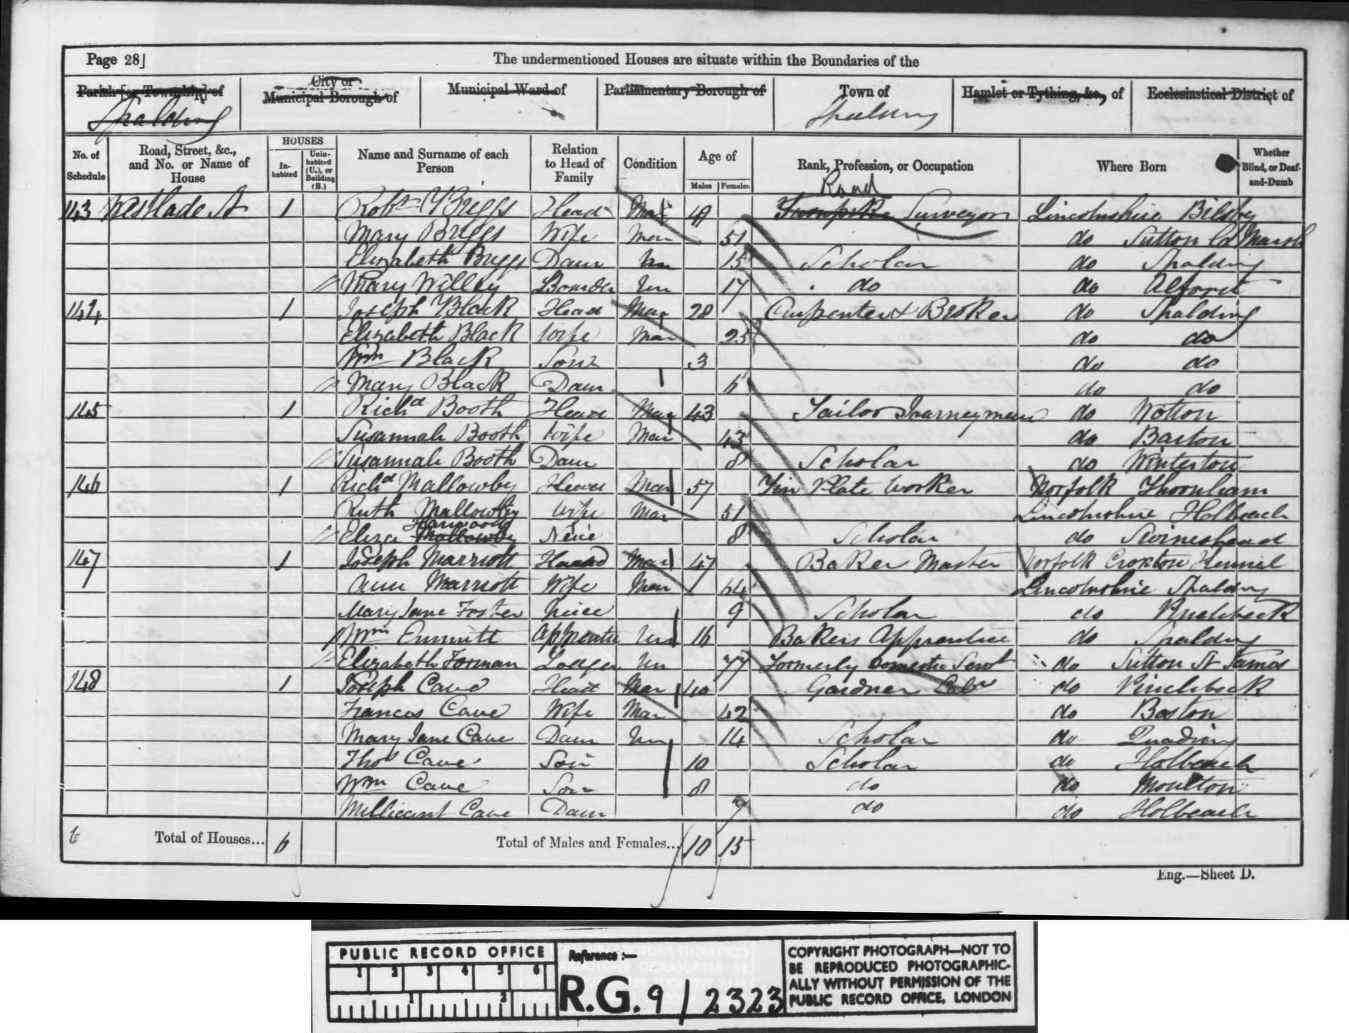 Page 28]
The undermentioned Houses are situate within the Boundaries of the
Parish [or Township] of
City or
Municipal Borough of
Municipal Ward of
Parliamentary Borough of
Town of
Hamlet or Tything, &c., of
Ecclesiastical District of
Spalding
Spalding
No. of Schedule
Road, Street, &c., and No. or Name of House
HOUSES
In-habited
Unin-habited (U.), or Building (B.)
Name and Surname of each Person
Relation to Head of Family
Condition
Age of
Males
Females
Rank, Profession, or Occupation
Where Born
Whether Blind, or Deaf-and-Dumb
Road
143 Westlode St 1 Robt Briggs Head Mar Surveyor Lincolnshire Bilsby
Mary Briggs Wife Mar 51 do Sutton Marsh
Elizabeth Briggs Daur Un 15 Scholar do Spalding
Mary Willey Boarder Un 17 do do Alford
144 1 Joseph Black Head Mar 28 Carpenter & Broker do Spalding
Elizabeth Black Wife Mar 25 do do
Wm Black Son 3 do do
Mary Black Daur do do
145 1 Richd Booth Head Mar 43 Tailor Journeyman do Wotton
Susannah Booth Wife Mar 43 do Barton
Susannah Booth Daur 8 Scholar do Winterton
146 1 Richd Mallowby Head Mar 57 Tin Plate Worker Norfolk Thornham
Ruth Mallowby Wife Mar 51 Lincolnshire Holbeach
Eliza Mallowby Neice 8 Scholar do Swineshead
147 1 Joseph Marriott Head Mar 47 Baker Master Norfolk Croxton
Ann Marriott Wife Mar 64 Lincolnshire Spalding
Mary Jane Foster Niece 9 Scholar do Pinchbeck
Wm Emmitt Apprentice Un 16 Bakers Apprentice do Spalding
Elizabeth Forman Lodger Un 77 Formerly Domestic Servt do Sutton St James
148 1 Joseph Cave Head Mar 40 Gardner do Pinchbeck
Frances Cave Wife Mar 42 do Boston
Mary Jane Cave Daur Un 14 Scholar do Quadring
Thos Cave Son 10 Scholar do Holbeach
Wm Cave Son 8 do do Moulton
Millicent Cave Daur 7 do do Holbeach
6 Total of Houses... 6 Total of Males and Females... 10 15
Eng.—Sheet D.
PUBLIC RECORD OFFICE
1 2 3 4 5 6
1 2
Reference :—
R.G. 9/2323
COPYRIGHT PHOTOGRAPH—NOT TO
BE REPRODUCED PHOTOGRAPHIC-
ALLY WITHOUT PERMISSION OF THE
PUBLIC RECORD OFFICE, LONDON